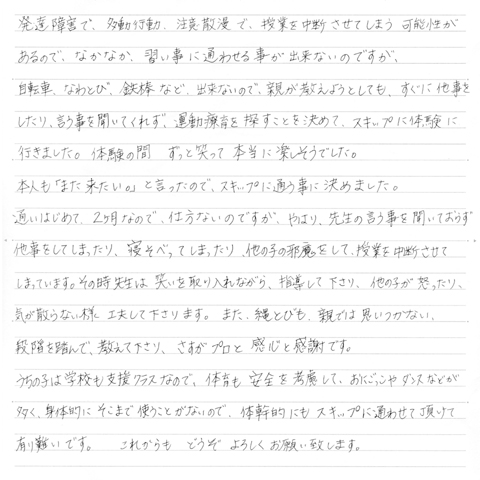 発達障害で、多動行動、注意散漫で、授業を中断させてしまう可能性が
あるので、なかなか、習い事に通わせる事が出来ないのですが、
自転車、なわとび、鉄棒など、出来ないので、親が教えようとしても、すぐに他事を
したり、言う事を聞いてくれず、運動療育を探すことを決めて、スキップに体験に
行きました。体験の間　ずっと笑って本当に楽しそうでした。
本人も「また来たい。」と言ったので、スキップに通う事に決めました。
通いはじめて、2ヶ月なので、仕方ないのですが、やはり、先生の言う事を聞いておらず
他事をしてしまったり、寝そべってしまったり、他の子の邪魔をして、授業を中断させて
しまっています。その時先生は笑いを取り入れながら、指導して下さり、他の子が怒ったり、
気が散らない様　工夫して下さります。また、縄とびも、親では思いつかない、
段階を踏んで、教えて下さり、さすがプロと感心と感謝です。
うちの子は学校も支援クラスなので、体育も安全を考慮して、おにごっこやダンスなどが
多く、身体的にそこまで使うことがないので、体幹的にもスキップに通わせて頂けて
有り難いです。　これからも　どうぞ　よろしくお願い致します。